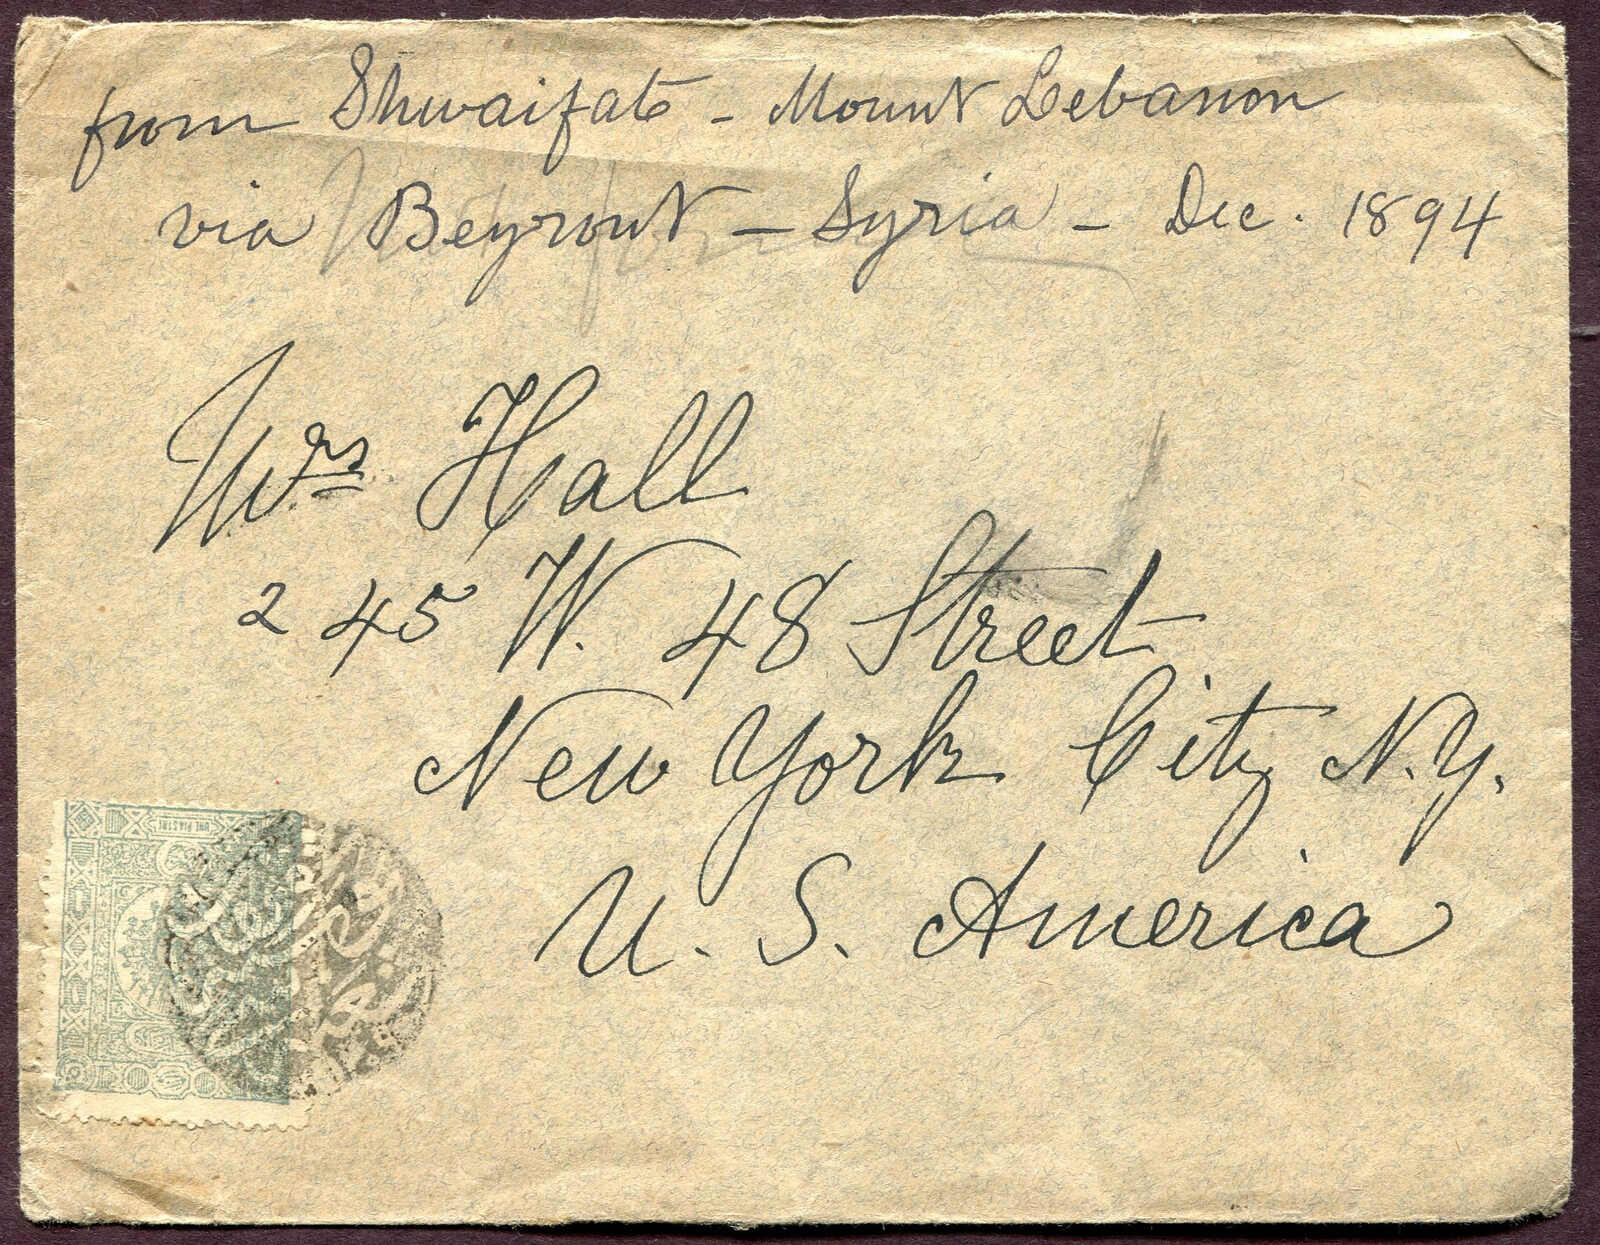 from Shwaifat - Mount Lebanon
via Beyrout - Syria - Dec. 1894
Mrs Hall
245 W. 48 Street
New York City N.Y.
U. S. America
UNE PIASTRE